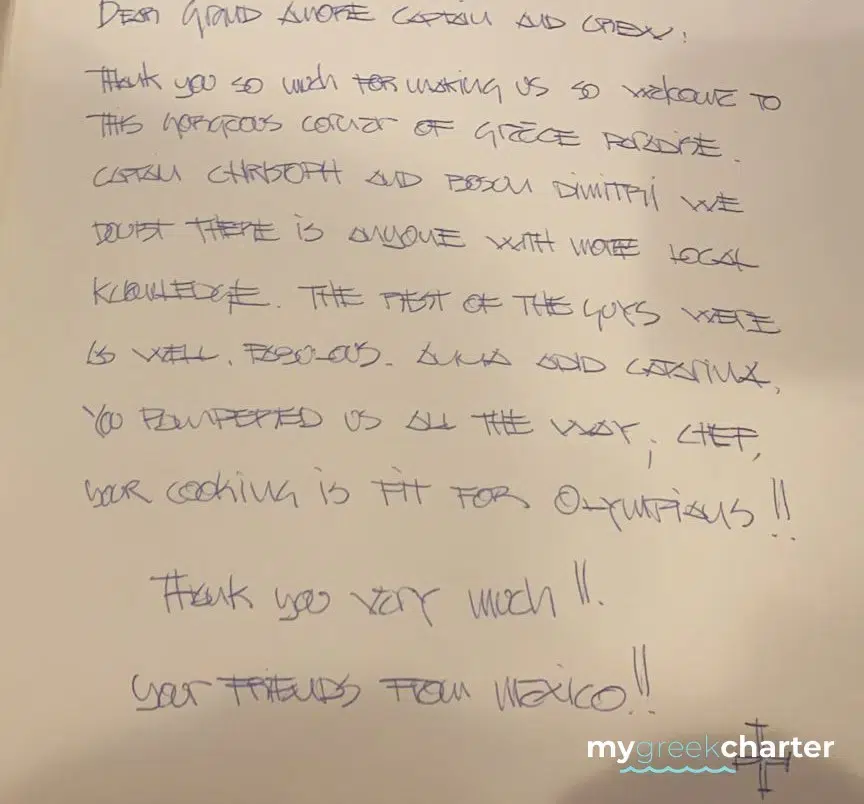 DEAR GRAND AMORE CAPTAIN AND CREW:
THANK you so much FOR making US SO WELCOME TO
THIS GORGEOUS CORNER OF GREECE PARADISE.
CAPTAIN CHRISTOPH AND BOSUN DIMITRI WE
DOUBT THERE is ANYONE WITH MORE LOCAL
KNOWLEDGE. THE REST OF THE GUYS WERE
AS WELL. FABULOUS. AND CATARINA,
YOU PAMPERED US ALL THE WAY; CHEF,
YOUR COOKING is FIT FOR OLYMPIANS!!
THANK you VERY much!!.
your FRIENDS FROM MEXICO!!
mygreekcharter